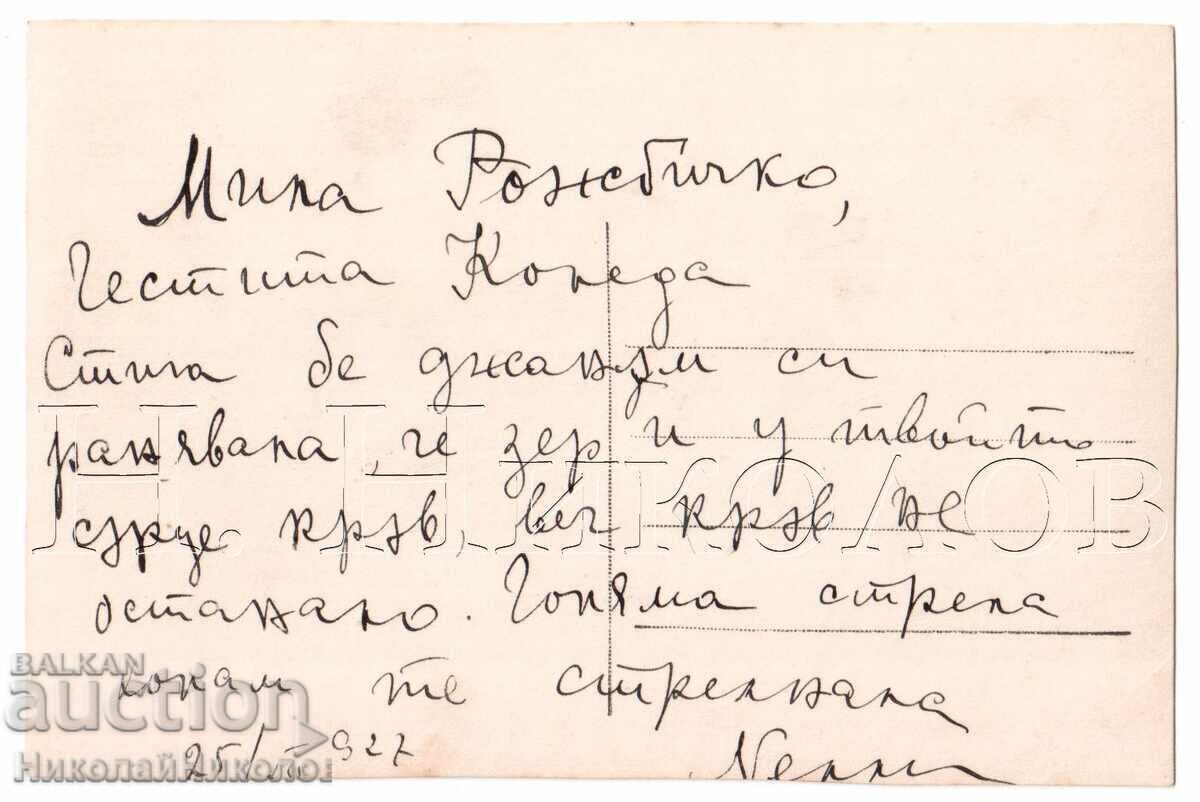 Мила Рожбичко,
Честита Коледа
Стига бе джанъм си
ранявала, че зер и у твойто
сърце кръв, веч кръв не
останало. Голяма стрела
те стрелнала
25/ 927
BALKAN
auction
НиколайНиколов
Н. НИКОЛОВ